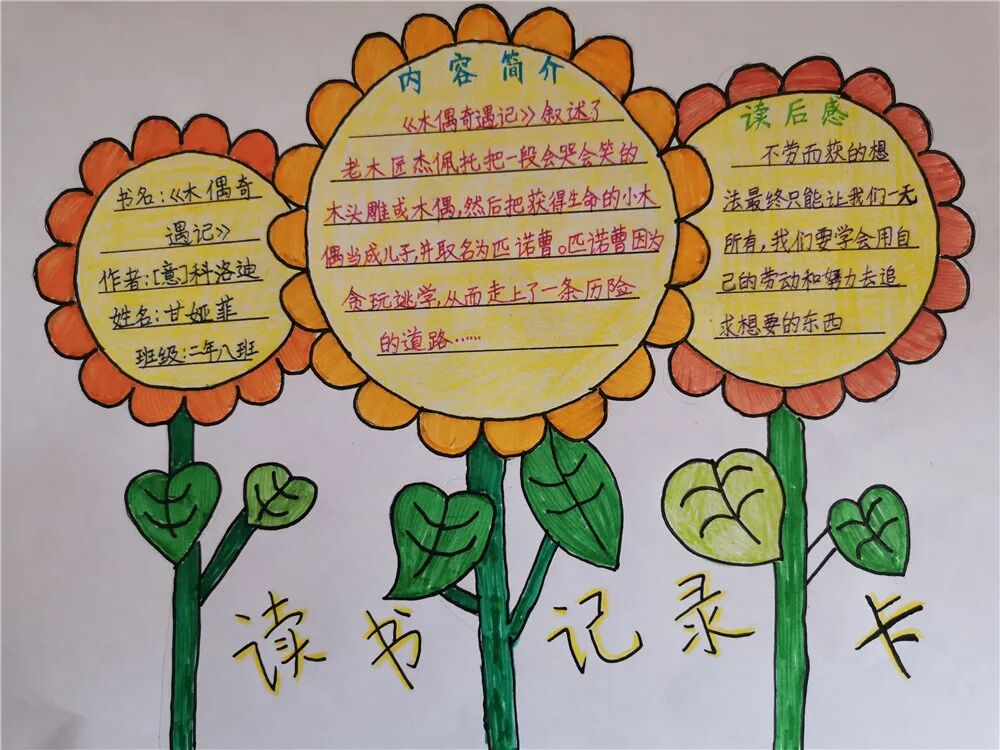 书名:《木偶奇
遇记》
作者:[意]科洛迪
姓名:甘娅菲
班级:二年八班
内容简介
《木偶奇遇记》叙述了
老木匠杰佩托把一段会哭会笑的
木头雕成木偶,然后把获得生命的小木
偶当成儿子,并取名为匹诺曹。匹诺曹因为
贪玩逃学,从而走上了一条历险
的道路……
读后感
不劳而获的想
法最终只能让我们一无
所有,我们要学会用自
己的劳动和努力去追
求想要的东西
读书记录卡